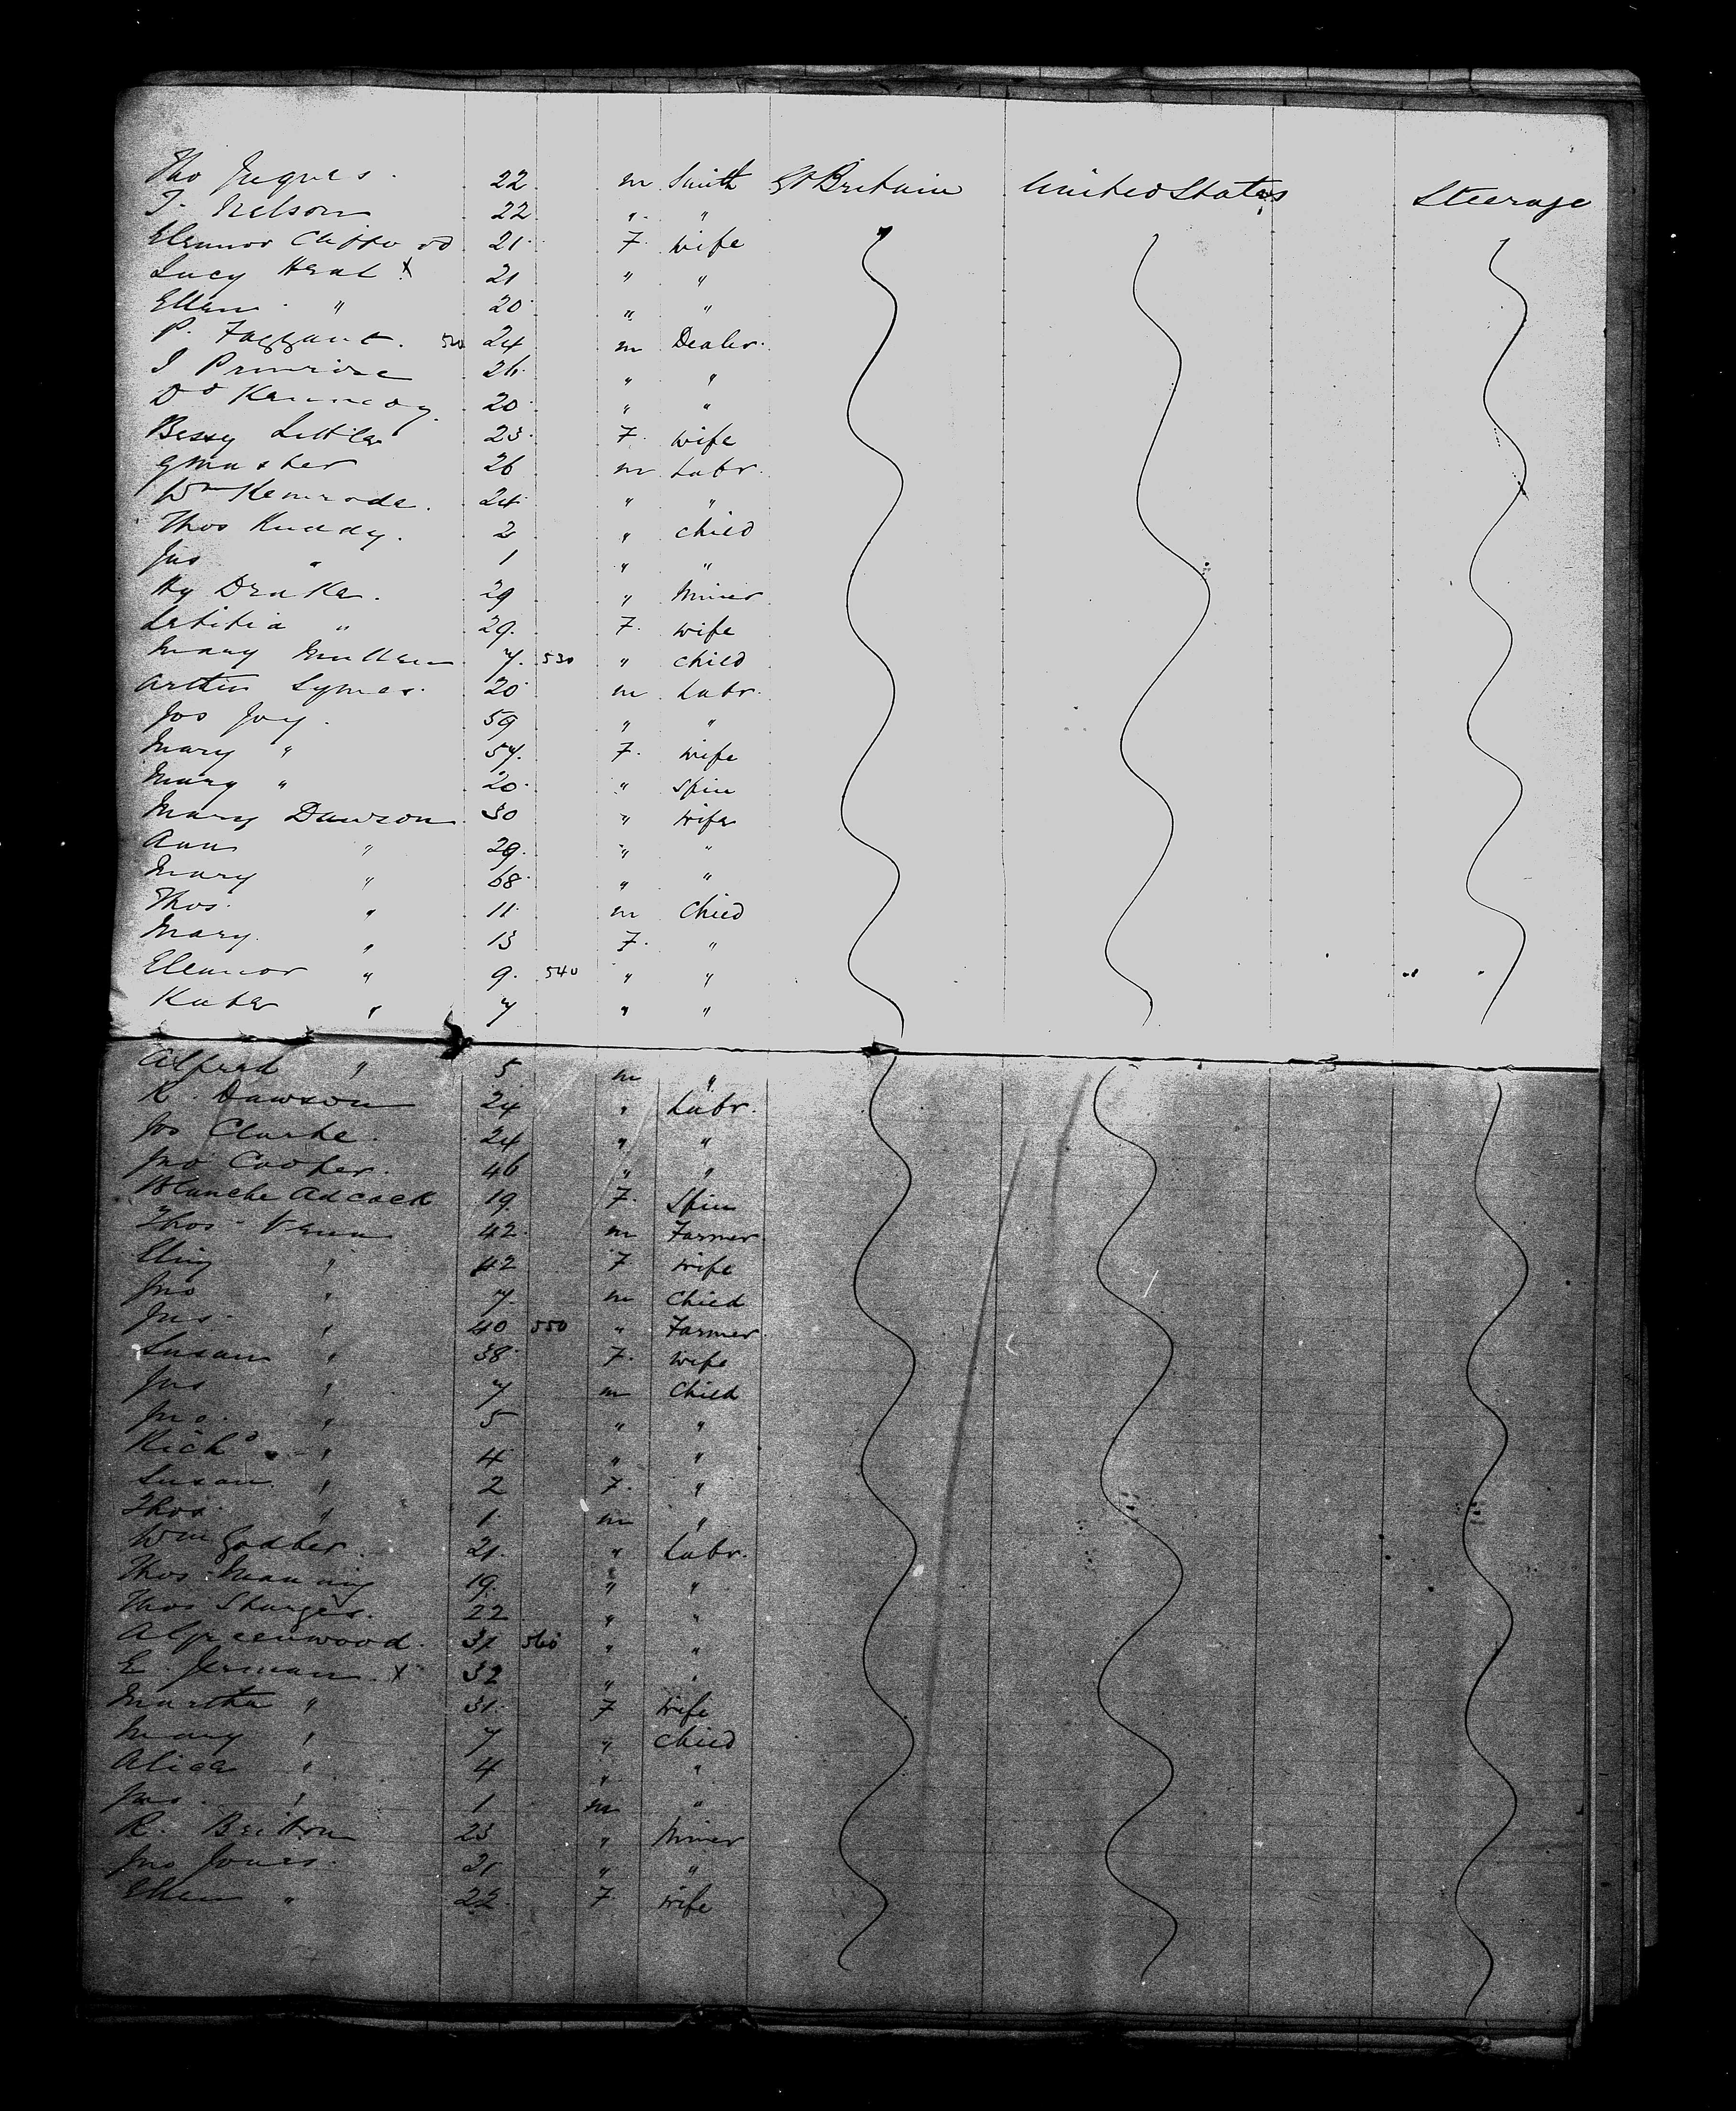 Tho Jaques. 22 m Smith Gt Britain United States Steerage
T. Nelson 22 " "
Eleanor Clifford 21 F wife
Lucy Heal x 21 " "
Ellen " 20 " "
P. 520 24 m Dealer
J Primrose 26 " "
Dd Kennedy 20 " "
Bessy Littler 23 F wife
26 m Labr.
Wm 24 " "
Thos 2 " child
Jas " 1 " "
Hy Drake. 29 " Miner
Letitia " 29 F wife
Mary Mullen 7 530 " child
Arthur Symes. 20 m Labr.
Jos Joy. 59 " "
Mary " 57 F wife
Mary " 20 " Spin
Mary Dawson 30 " wife
Ann " 29 " "
Mary " 68 " "
Thos. " 11 m Child
Mary. " 13 F "
Eleanor " 9 540 " "
Kate " 7 " "
Alfred " 5 m "
R. Dawson 24 " Labr.
Jos Clarke. 24 " "
Jno Cooper. 46 " "
Blanche Adcock 19 F Spin
Thos Venn 42 m Farmer
" 42 F wife
Jno " 7 m Child
Jas " 40 550 " Farmer
Susan " 38 F wife
Jas " 7 m Child
Jno. " 5 " "
Richd " 4 " "
Susan " 2 F "
Thos " 1 m "
Wm Godber. 21 " Labr.
Thos Manning 19 " "
Thos Sturges. 22 " "
A Greenwood. 37 560 " "
E. Jerman x 32 " "
Martha " 31 F wife
Mary " 7 " Child
Alice " 4 " "
Jas. " 1 m "
R. Briton 23 " Miner
Jno Jones. 21 " "
Ellen " 22 F wife